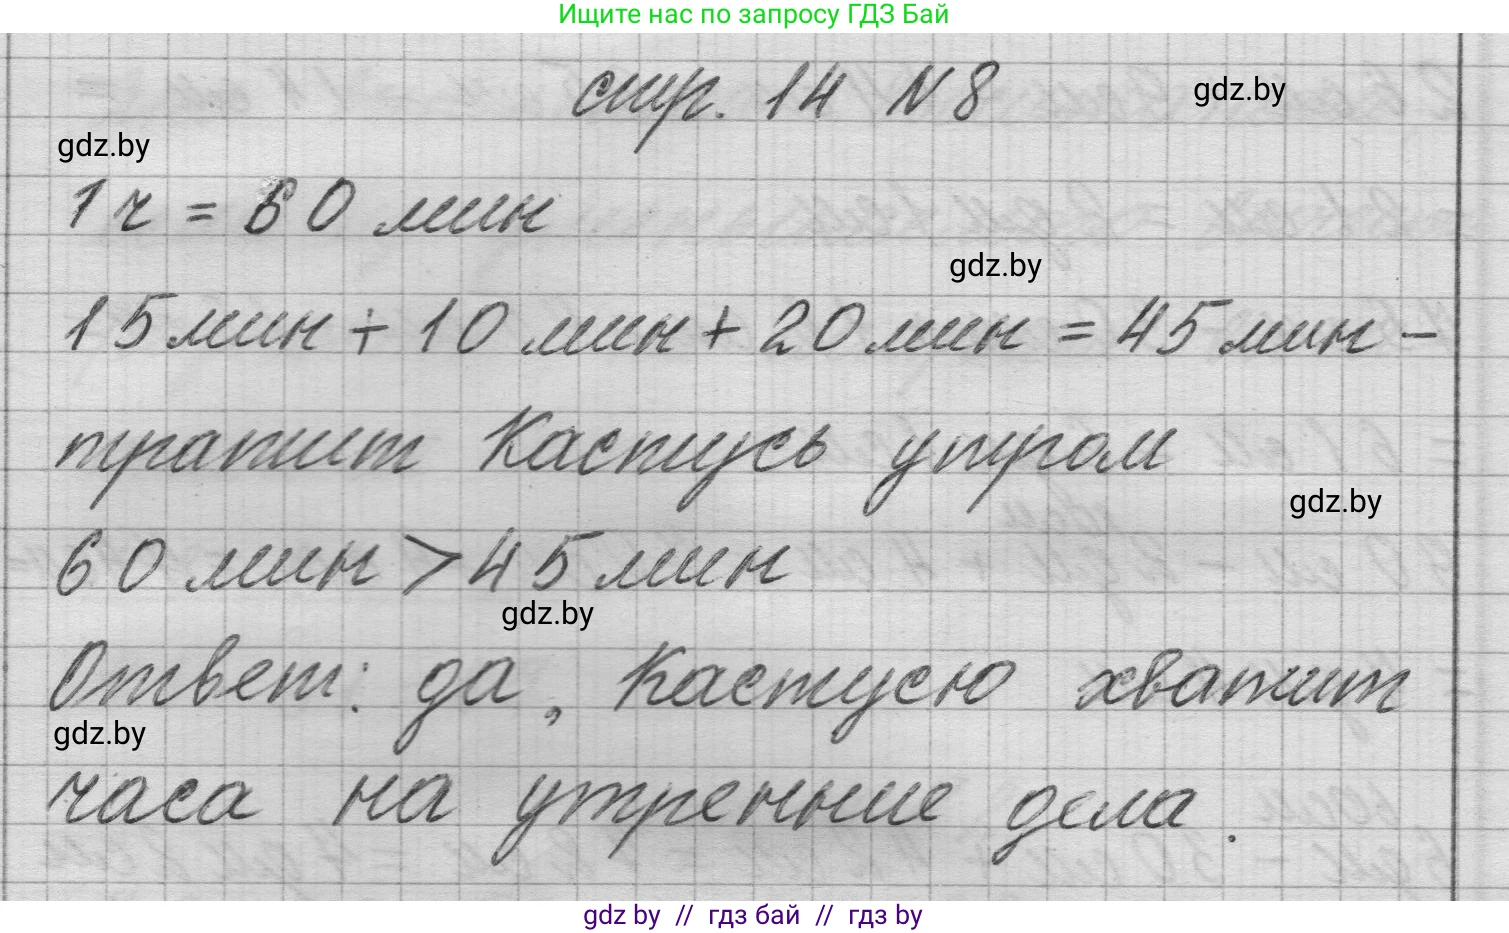 Ищите нас по запросу ГДЗ Бай
стр. 14 N 8
gdz.by
gdz.by
1 ч = 60 мин
gdz.by
15 мин + 10 мин + 20 мин = 45 мин –
тратит Кастусь утром
gdz.by
60 мин > 45 мин
gdz.by
Ответ: да, Кастусю хватит
gdz.by
часа на утренние дела.
gdz by // гдз бай // гдз by